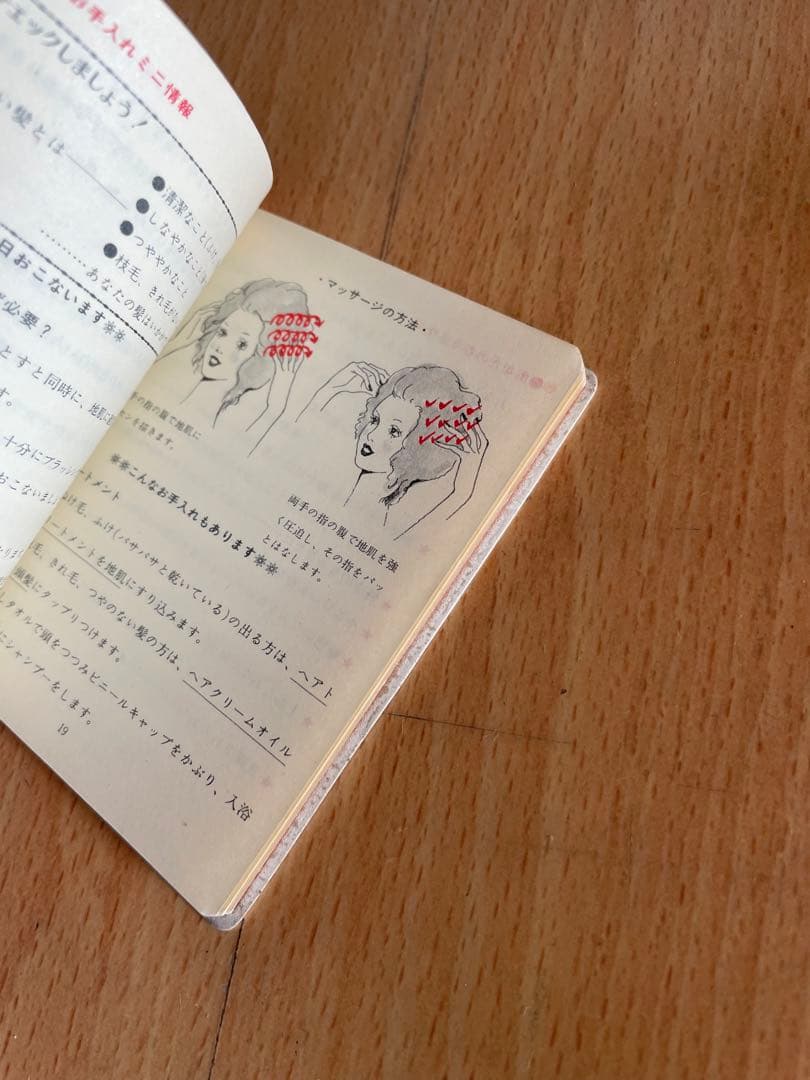 お手入れミニ情報
ェックしましょう!
い髪とは
●清潔なこと(ふけ
●しなやかなこと
●つややかなこと
●枝毛、きれ毛が
………あなたの髪はいか
日おこないます❊❊
必要?
とすと同時に、地肌に
す。
十分にブラッシ
おこないまし
・マッサージの方法・
手の指の腹で地肌に
センを描きます。
両手の指の腹で地肌を強
く圧迫し、その指をパッ
とはなします。
❊❊こんなお手入れもあります❊❊
ートメント
け毛、ふけ(パサパサと乾いている)の出る方は、ヘアト
ートメントを地肌にすり込みます。
毛、きれ毛、つやのない髪の方は、ヘアクリームオイル
頭髪にタップリつけます。
タオルで頭をつつみビニールキャップをかぶり、入浴
にシャンプーをします。
19